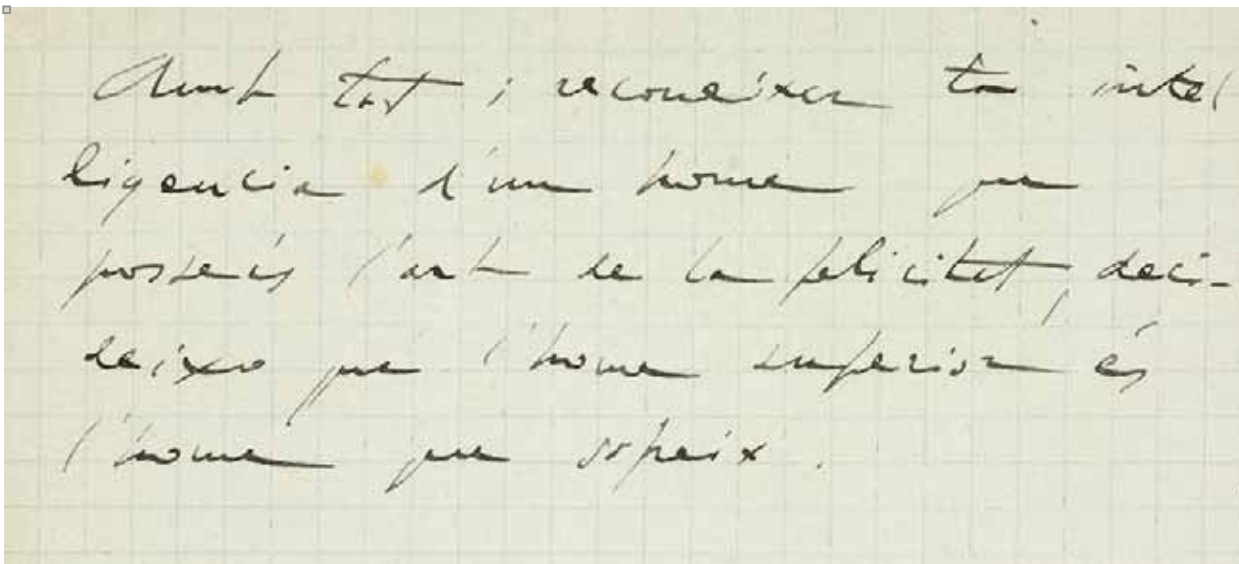 Amb tot i reconeixer la intel
ligencia d'un home que
posseís l'art de la felicitat, deci-
deixo que l'home superior és
l'home que sofreix.